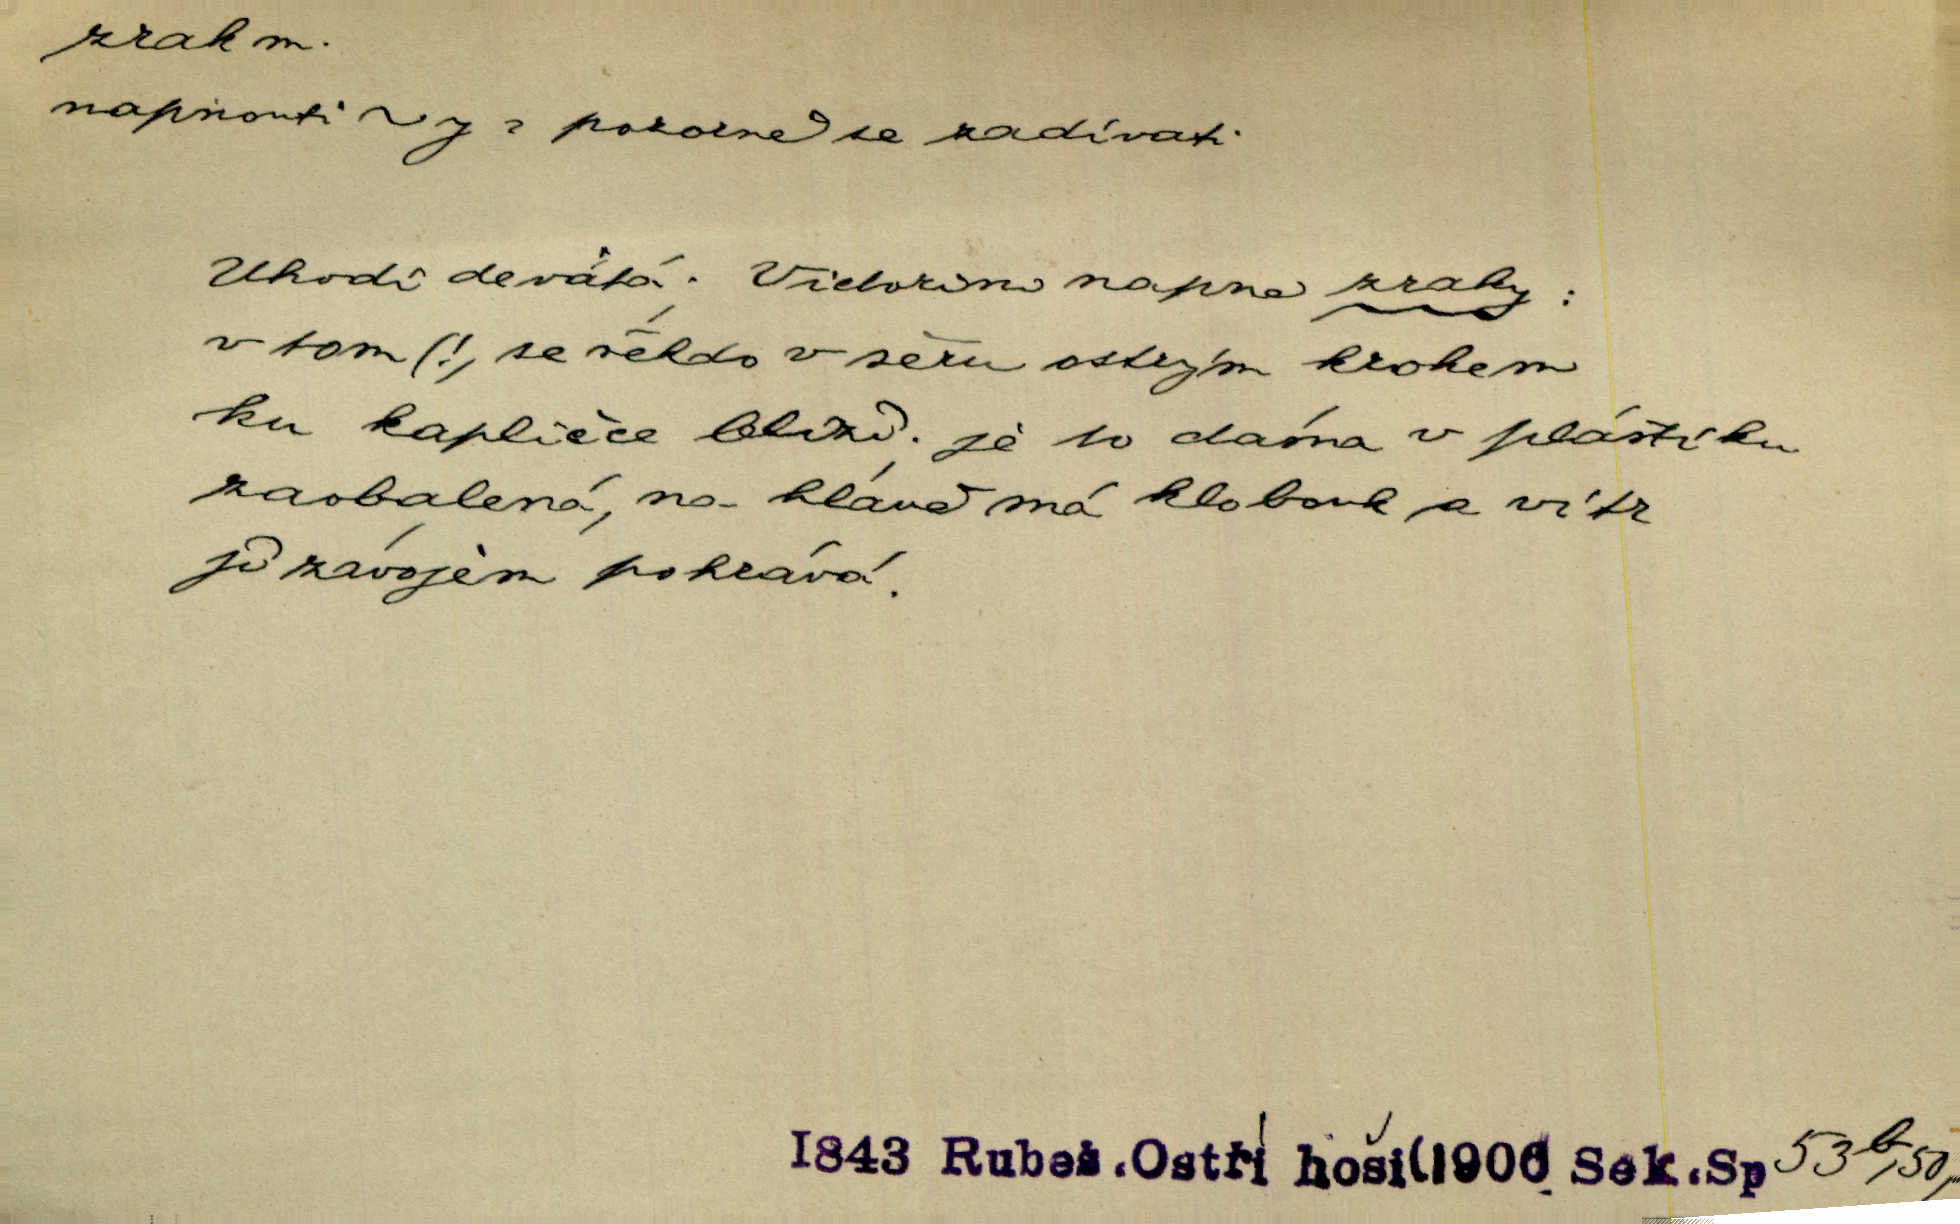 zrak m.
napnouti ~y = pozorně se zadívati
Uhodí devátá. Victorin napne zraky:
v tom (!) se někdo v šeru ostrým krokem
ku kapličce blíží. je to dáma v pláštíku
zaobalená, na hlavě má klobouk a vítr
jí závojem pohrává.
1843 Rubeš.Ostří hoši(1906 Sek.Sp 53